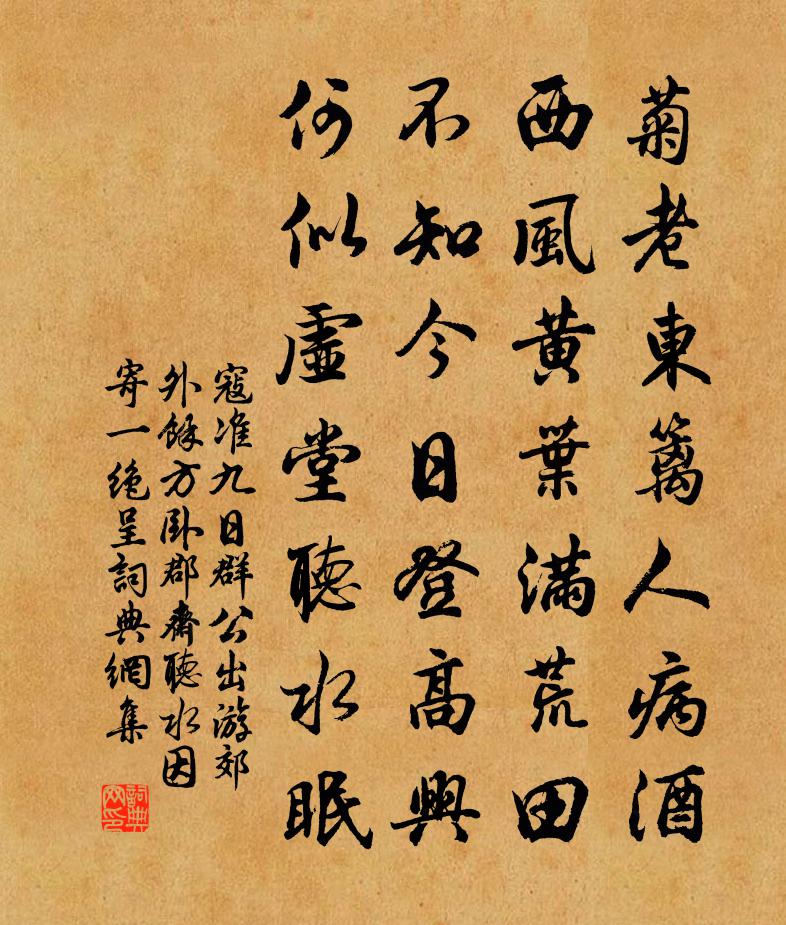 菊老東籬人病酒
西風黃葉滿荒田
不知今日登高興
何似虛堂聽水眠
寇准九日群公出游郊
外餘方臥郡齋聽水因
寄一絶呈詞典網集
詞典
网印